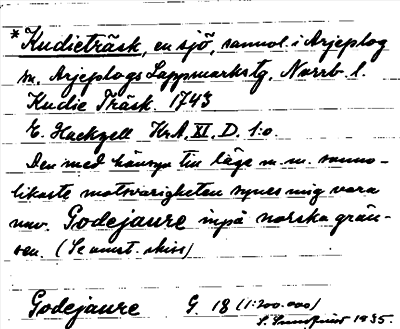 * Kudieträsk, en sjö, sannol. i Arjeplog
sn. Arjeplogs Lappmarkstg, Norrb. l.
Kudie Träsk. 1743
E. Hackzell KrA, XI, D, 1:o.
Den med hänsyn till läge m. m. sanno-
likaste motsvarigheten synes mig vara
nuv. Godejaure inpå norska grän-
sen. (Se annt. skiss)
Godejaure G. 18 (1:200.000)
S. Sundqvist 1935.